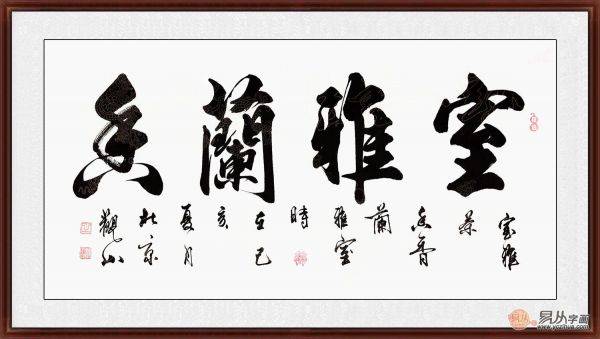 室雅蘭香
室雅
茶
香
蘭
雅室
時
在己
亥
夏月
京
觀山
易从字画
www.yczihua.com